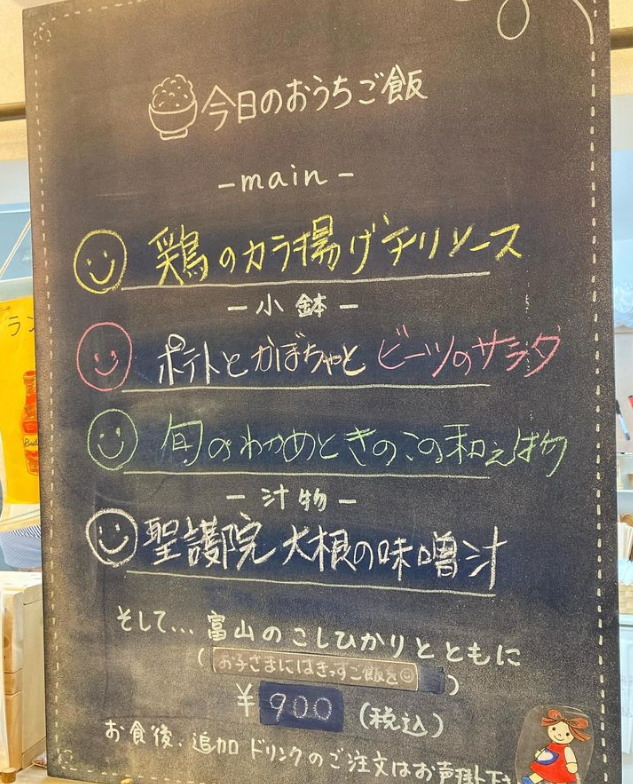 今日のおうちご飯
-main-
鶏のカラ揚げチリソース
-小鉢-
ポテトとかぼちゃとビーツのサラダ
旬のわかめときのこの和え物
-汁物-
聖護院大根の味噌汁
そして...富山のこしひかりとともに
(お子さまにはきっずご飯を)
¥900(税込)
お食後、追加ドリンクのご注文はお声掛け下さ
ラン